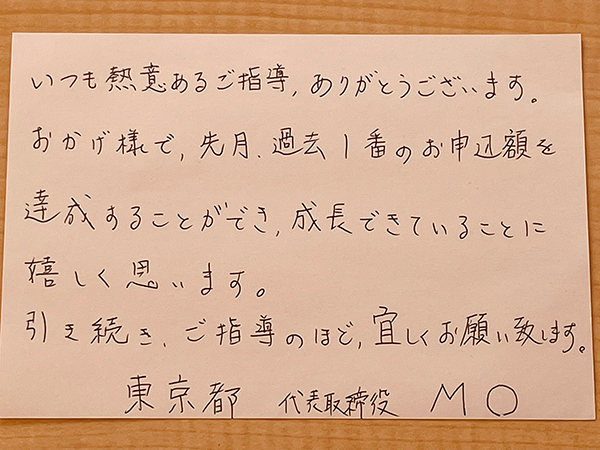 いつも熱意あるご指導,ありがとうございます。
おかげ様で,先月、過去1番のお申込額を
達成することができ,成長できていることに
嬉しく思います。
引き続き、ご指導のほど,宜しくお願い致します。
東京都 代表取締役 MO